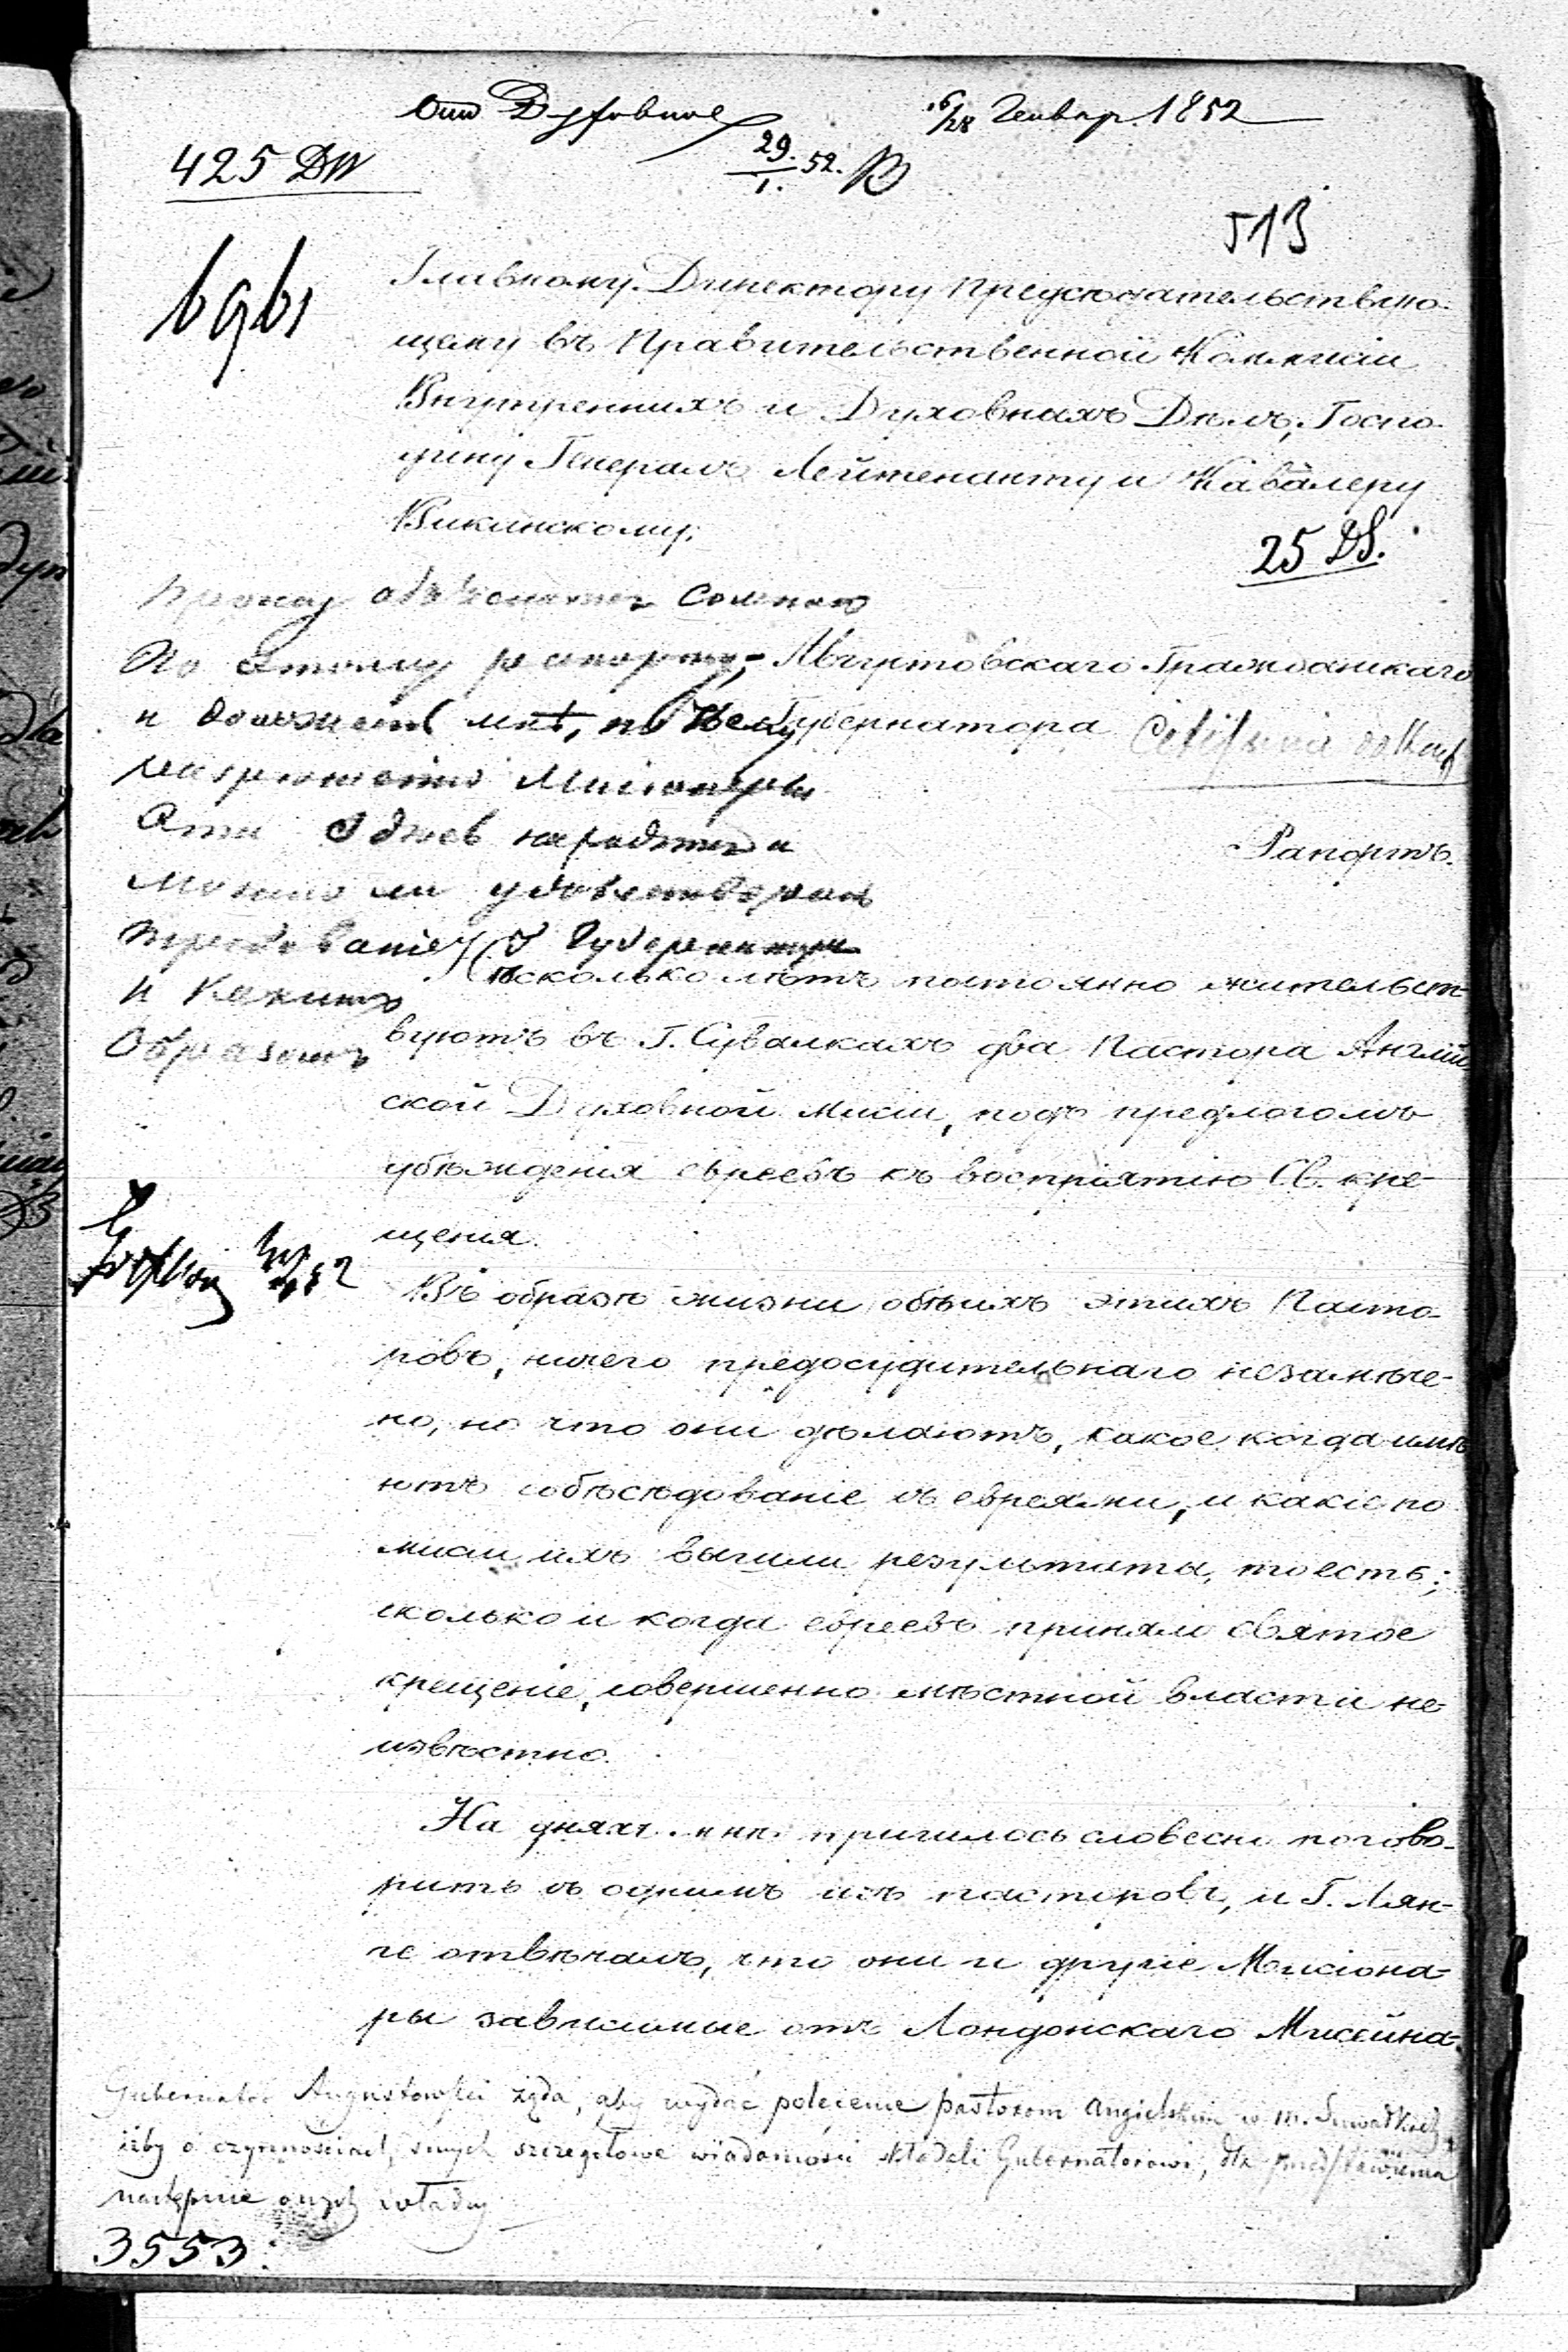 Отд Духовное 16/28 Генвар. 1852
29/1. 52.
425 DW
513
Главному Директору Предсѣдательствую-
щему въ Правительственной Коммисіи
Внутреннихъ и Духовныхъ Дѣлъ, Госпо-
дину Генералъ Лейтенанту и Кавалеру
Викинскому.
25 DS.
Прошу объясниться со мною
по этому рапорту,
и доложить мнѣ, по чему
Миссіонеры
эти здѣсь находятся и
можно ли удовлетворить
требованіе Г. Губернатора
и какимъ
образомъ
Августовскаго Гражданскаго
Губернатора
Рапортъ.
Нѣсколько лѣтъ постоянно жительст-
вуютъ въ Г. Сувалкахъ два Пастора Англій
ской Духовной Мисіи, подъ предлогомъ
убѣжденія евреевъ къ воспріятію Св. кре-
щенія.
Въ образѣ жизни обѣихъ этихъ Пасто-
ровъ, ничего предосудительнаго незамѣче-
но, но что они дѣлаютъ, какое когда имѣ
ютъ собѣсѣдованіе съ евреями, и какіе по
мисіи ихъ вышли результаты, тоесть;
сколько и когда евреевъ приняли святое
крещеніе, совершенно мѣстной власти не-
извѣстно.
На дняхъ мнѣ пришлось словесно погово-
рить съ однимъ изъ пасторовъ, и Г. Лян-
ге отвѣчалъ, что они и другіе Мисіона-
ры зависимые отъ Лондонскаго Мисейна-
Gubernator Augustowski żąda, aby wydać polecenie pastorom angielskim w m. Suwałkach,
iżby o czynnościach swych szczegółowe wiadomości składali Gubernatorowi, dla przedstawienia
następnie onych władzy
3553